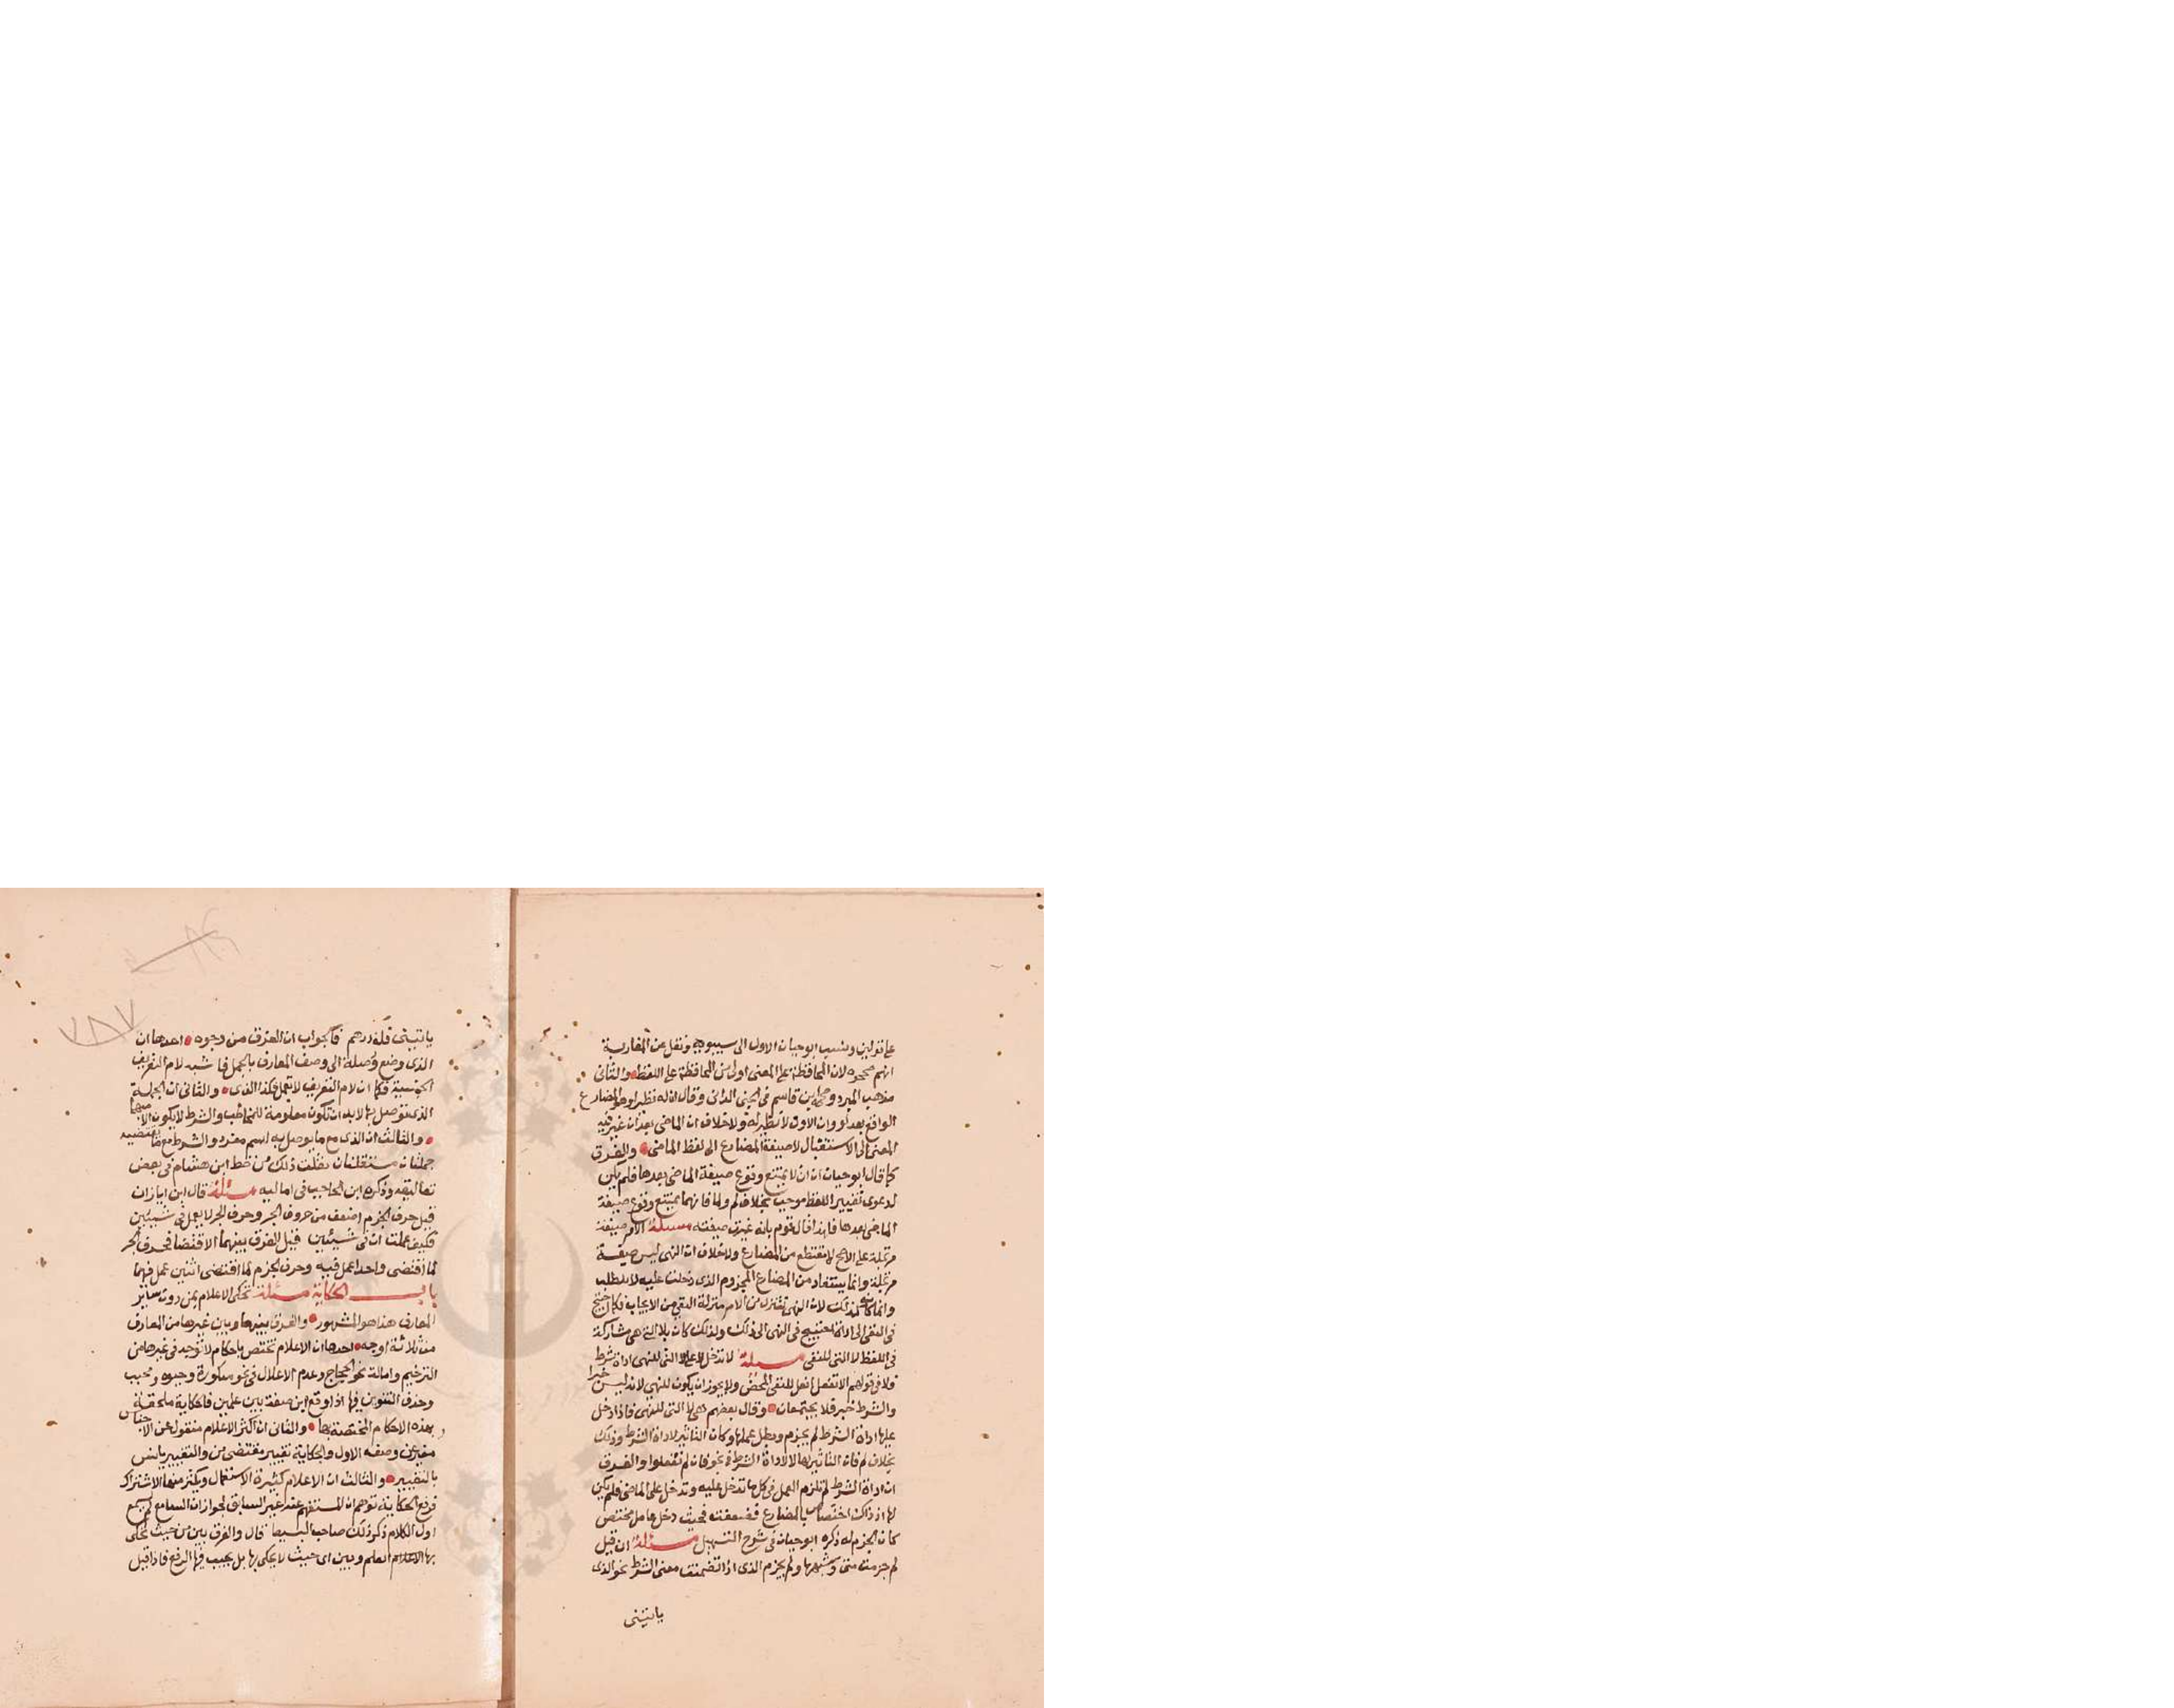 على قولين ونسب ابوحيان الاول الى سيبويه ونقل عن المغاربة
انهم صححوه لان المحافظة على المعنى اولى من المحافظة على اللفظ والثاني
مذهب المبرد وصححه ابن قاسم في الجنى الداني وقال ان له نظيرا وهو المضارع
الواقع بعد لو وان الاول لا نظير له ولا خلاف ان الماضي بعد ان غير فيه
المعنى الى الاستقبال لا صيغة المضارع الى لفظ الماضي والفرق
كما قال ابوحيان ان ان لا يمتنع وقوع صيغة الماضي بعدها فلم يكن
لدعوى تغيير اللفظ موجب بخلاف لم ولما فانهما يمتنع وقوع صيغة
الماضي بعدها فلهذا قال قوم بانه غيرت صيغته مسئلة الامر صيغة
مرتجلة على الاصح لا مقتطع من المضارع ولا خلاف ان النهي ليس صيغة
مرتجلة وانما يستفاد من المضارع المجزوم الذي دخلت عليه لا للطلب
وانما كان كذلك لان النهي يتنزل من الامر منزلة النفي من الايجاب فكما احتيج
في النفي الى اداة احتيج في النهي الى ذلك ولذلك كان بلا التي هي مشاركة
في اللفظ لا التي للنفي مسئلة لا تدخل على لا التي للنهي اداة شرط
فلا في قولهم الا تفعل افعل للنفي المحض ولا يجوز ان يكون للنهي لانه ليس خبرا
والشرط خبر فلا يجتمعان وقال بعضهم هي لا التي للنهي فاذا دخل
عليها اداة الشرط لم يجزم وبطل عملها وكان التاثير لاداة الشرط وذلك
بخلاف لم فان التاثير لها لا لاداة الشرط في نحو فان لم تفعلوا والفرق
ان اداة الشرط لم تلزم العمل في كل ما تدخل عليه وتدخل على الماضي فلم يكن
لها اذ ذاك اختصاص بالمضارع فضعفت فحيث دخل عامل مختص
كان الجزم له ذكره ابوحيان في شرح التسهيل مسئلة ان قيل
لم جزمت متى وشبهها ولم يجزم الذي اذا تضمنت معنى الشرط نحو الذي
ياتيني
ياتيني فله درهم فالجواب ان الفرق من وجوه احدها ان
الذي وضع وصلة الى وصف المعارف بالجمل فاشبه لام التعريف
الجنسية فكما ان لام التعريف لا تعمل فكذا الذي والثاني ان الجملة
الذي توصل بها لابد ان تكون معلومة للمخاطب والشرط لا يكون الا مبهما
والثالث ان الذي مع ما يوصل به اسم مفرد والشرط مع ما يقتضيه
جملتان مستقلتان نقلت ذلك من خط ابن هشام في بعض
تعاليقه وذكره ابن الحاجب في اماليه مسئلة قال ابن اياز ان
قيل حرف الجزم اضعف من حروف الجر وحرف الجر لا يعمل في شيئين
فكيف عملت ان في شيئين قيل الفرق بينهما الاقتضا فحرف الجر
لما اقتضى واحدا عمل فيه وحرف الجزم لما اقتضى اثنين عمل فيهما
باب الحكاية مسئلة تحكى الاعلام بمن دون سائر
المعارف هذا هو المشهور والفرق بينها وبين غيرها من المعارف
من ثلاثة اوجه احدها ان الاعلام تختص باحكام لا توجد في غيرها من
الترخيم وامالة نحو الحجاج وعدم الاعلال في نحو مكورة وحيوه ومحبب
وحذف التنوين فيها اذا وقع ابن صفة بين علمين فالحكاية ملحقة
بهذه الاحكام المختصة بها والثاني ان اكثر الاعلام منقول عن الاجناس
مغير عن وضعه الاول والحكاية تغيير مقتضى من والتغيير يانس
بالتغيير والثالث ان الاعلام كثيرة الاستعمال ويكثر فيها الاشتراك
فرفع الحكاية توهم ان المستفهم عنه غير السابق لجواز ان السامع لم يسمع
اول الكلام ذكر ذلك صاحب البسيط قال والفرق بين من حيث تحكى
بها العلم وبين اي حيث لا يحكى بها بل يجب فيها الرفع فاذا قيل